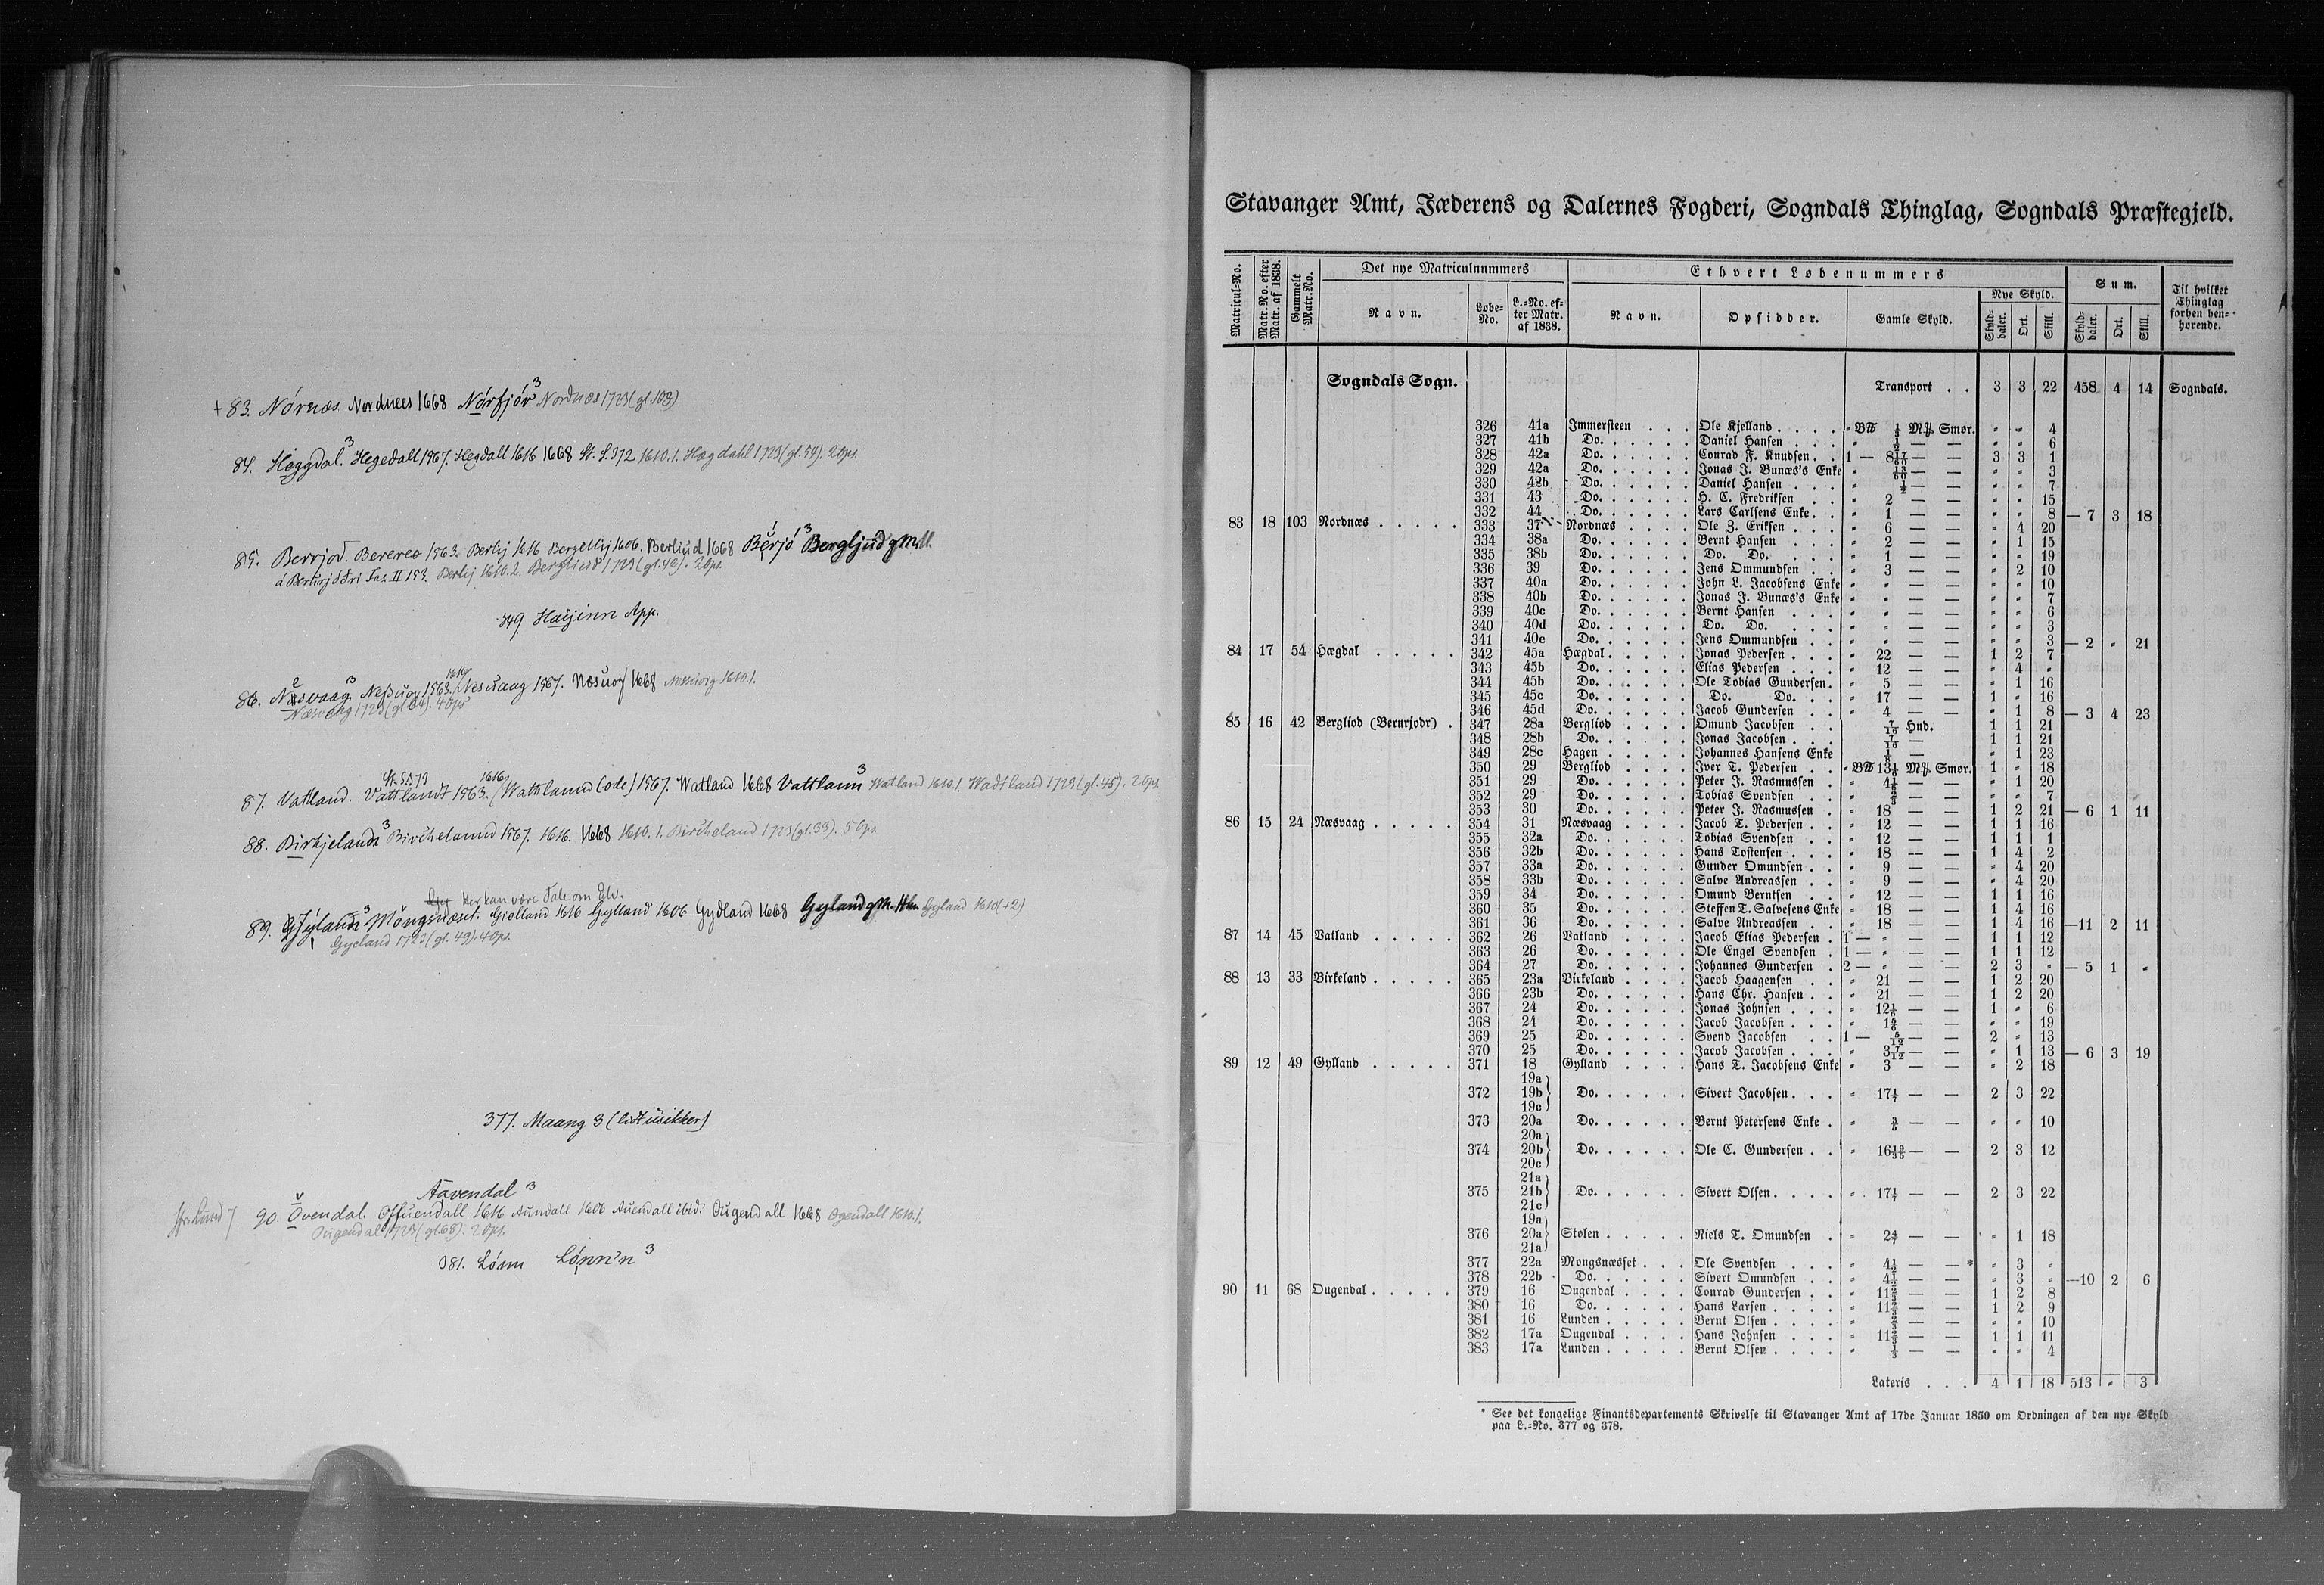 +83. Nórnæs. Nordnees 1668 Nórfjór 3 Nordnæs 1723 (gl. 103)
84. Heggdal. 3 Hegedall 1567. Hegdall 1616 1668 St. S. 372 1610.1. Hægdahl 1723 (gl. 54). 2 ops.
85. Berrjod. 1563. Berlij 1616 1606. Berliud 1668 Bérjó 3 Bergljud g M.
Fas. II 153. Berlij 1610.2. Bergliud 1723 (gl. 42). 2 ops.
349. Haigjenn App.
86. Næsvaag 3 1563. 1616 Nesuaag 1567. Næsuog 1668 Nessuorg 1610.1.
Næsvaag 1723 (gl. 24). 4 ops
St. S 373
87. Vatland. Vattlandt 1563. 1616 (Wathlannd (øde) 1567. Watland 1668 Vattlann 3 Watland 1610.1. Wadtland 1723 (gl. 45). 2 ops.
88. Birkjelandn 3 Bircheland 1567. 1616. 1668 1610.1. Bircheland 1723 (gl. 33). 5 Ops.
Her kan være Tale om Elv.
89. Gjýlandn 3 Mongsnæset. Gielland 1616 Gylland 1606 Gydland 1668 Gyland g M. Gyland 1610 (+2)
Gyeland 1723 (gl. 49). 4 Ops.
377. Maang 3 (lidt usikker)
Aavendal 3
90. Ovendal. Offuendall 1616 Aundall 1606 Auendall ibid. Ougendall 1668 Ogendall 1610.1.
Ougendal 1723 (gl. 68). 2 ops.
381. Lónn Lónn'n 3
Stavanger Amt, Jæderens og Dalernes Fogderi, Sogndals Thinglag, Sogndals Præstegjeld.
Matricul-No. Matr. No. efter Matr. af 1838. Gammelt Matr. No. Det nye Matriculnummers Ethvert Løbenummers Sum. Til hvilket Thinglag forhen henhørende.
Navn. Løbe-No. L.-No. efter Matr. af 1838. Navn. Opsidder. Gamle Skyld. Nye Skyld. Skylddaler. Ort. Skill. Skylddaler. Ort. Skill.
Sogndals Sogn. Transport . . 3 3 22 458 4 14 Sogndals.
326 41a Immersteen . . . Ole Kjelland . . . . " B℔ 1/3 M℔ Smør. " " 4
327 41b Do. . . . . . Daniel Hansen . . . . " 1/2 — — " " 6
328 42a Do. . . . . . Conrad F. Knudsen . . 1 — 8 17/60 — — 3 3 1
329 42a Do. . . . . . Jonas J. Bunæs's Enke " 13/60 — — " " 3
330 42b Do. . . . . . Daniel Hansen . . . " 1/2 — — " " 7
331 43 Do. . . . . . H. C. Fredriksen . . " 2 — — " " 15
332 44 Do. . . . . . Lars Carlsens Enke . . " 1 — — " " 8 — 7 3 18
83 18 103 Nordnæs . . . . . 333 37 Nordnæs . . . . Ole Z. Eriksen . . . " 6 — — " 4 20
334 38a Do. . . . . . Bernt Hansen . . . " 2 — — " 1 15
335 38b Do. . . . . . Do. Do. . . . " 1 — — " " 19
336 39 Do. . . . . . Jens Ommundsen . . " 3 — — " 2 10
337 40a Do. . . . . . John L. Jacobsens Enke " " — — " " 10
338 40b Do. . . . . . Jonas J. Bunæs's Enke " " — — " " 7
339 40c Do. . . . . . Bernt Hansen . . . " " — — " " 6
340 40d Do. . . . . . Do. Do. . . . " " — — " " 3
341 40e Do. . . . . . Jens Ommundsen . . " " — — " " 3 — 2 " 21
84 17 54 Hægdal . . . . . 342 45a Hægdal . . . . . Jonas Pedersen . . . " 22 — — 1 2 7
343 45b Do. . . . . . Elias Pedersen . . . " 12 — — " 4 "
344 45b Do. . . . . . Ole Tobias Gundersen. " 5 — — " 1 16
345 45c Do. . . . . . Do. Do. . . " 17 — — 1 " 16
346 45d Do. . . . . . Jacob Gundersen . . " 4 — — " 1 8 — 3 4 23
85 16 42 Bergliod (Berurjodr) . 347 28a Bergliod . . . . Omund Jacobsen . . 7/16 Hud. 1 1 21
348 28b Do. . . . . . Jonas Jacobsen . . . 7/16 — 1 1 21
349 28c Hagen . . . . . Johannes Hansens Enke 1/8 — " 1 23
350 29 Bergliod . . . . Iver T. Pedersen . . " B℔ 13 1/6 M℔ Smør. 1 " 18
351 29 Do. . . . . . Peter J. Rasmussen . " 4 1/6 — — " 1 20
352 29 Do. . . . . . Tobias Svendsen . . " 2/3 — — " " 7
353 30 Do. . . . . . Peter J. Rasmussen . " 18 — — 1 2 21 — 6 1 11
86 15 24 Næsvaag . . . . . 354 31 Næsvaag . . . . Jacob T. Pedersen . . " 12 — — 1 1 16
355 32a Do. . . . . . Tobias Svendsen . . " 12 — — 1 1 1
356 32b Do. . . . . . Hans Tostensen . . . " 18 — — 1 4 2
357 33a Do. . . . . . Gunder Omundsen . . " 9 — — " 4 20
358 33b Do. . . . . . Salve Andreassen . . " 9 — — " 4 20
359 34 Do. . . . . . Omund Berntsen . . " 12 — — 1 1 16
360 35 Do. . . . . . Steffen T. Salvesens Enke " 18 — — 1 4 16
361 36 Do. . . . . . Salve Andreassen . . " 18 — — 1 4 16 —11 2 11
87 14 45 Vatland . . . . . 362 26 Vatland . . . . Jacob Elias Pedersen . 1 — " — — 1 1 12
363 26 Do. . . . . . Ole Engel Svendsen . 1 — " — — 1 1 12
364 27 Do. . . . . . Johannes Gundersen . 2 — " — — 2 3 " — 5 1 "
88 13 33 Birkeland . . . . . 365 23a Birkeland . . . . Jacob Haagensen . . " 21 — — 1 2 20
366 23b Do. . . . . . Hans Chr. Hansen . . " 21 — — 1 2 20
367 24 Do. . . . . . Jonas Johnsen . . . " 12 1/6 — — 1 " 6
368 24 Do. . . . . . Jacob Jacobsen . . . " 1 5/6 — — " " 19
369 25 Do. . . . . . Svend Jacobsen . . 1 — 5/12 — — 2 " 13
370 25 Do. . . . . . Jacob Jacobsen . . . " 3 7/12 — — " 1 13 — 6 3 19
89 12 49 Gylland . . . . . 371 18 Gylland . . . . Hans T. Jacobsens Enke " 3 — — " 2 18
19a
372 19b Do. . . . . . Sivert Jacobsen . . . " 17 1/7 — — 2 3 22
19c
373 20a Do. . . . . . Bernt Petersens Enke . " 3/5 — — " " 10
20a
374 20b Do. . . . . . Ole C. Gundersen . . " 16 19/35 — — 2 3 12
20c
21a
375 21b Do. . . . . . Sivert Olsen. . . . " 17 1/7 — — 2 3 22
21c
19a
376 20a Stolen . . . . . Niels T. Omundsen . " 2 4/7 — — " 1 18
21a
377 22a Mongsnæsset . . . Ole Svendsen . . . " 4 1/2 — — * " 3 "
378 22b Do. . . . . . Sivert Omundsen . . " 4 1/2 — — " 3 " —10 2 6
90 11 68 Ougendal . . . . . 379 16 Ougendal . . . . Conrad Gundersen . . " 11 2/3 — — 1 2 8
380 16 Do. . . . . . Hans Larsen . . . . " 11 2/3 — — 1 2 9
381 16 Lunden . . . . . Bernt Olsen . . . . " 2/3 — — " " 10
382 17a Ougendal . . . . Hans Johnsen . . . " 11 2/3 — — 1 1 11
383 17a Lunden . . . . . Bernt Olsen . . . . " 1/3 — — " " 4
Lateris . . . 4 1 18 513 " 3
* See det kongelige Finantsdepartements Skrivelse til Stavanger Amt af 17de Januar 1850 om Ordningen af den nye Skyld
paa L.-No. 377 og 378.